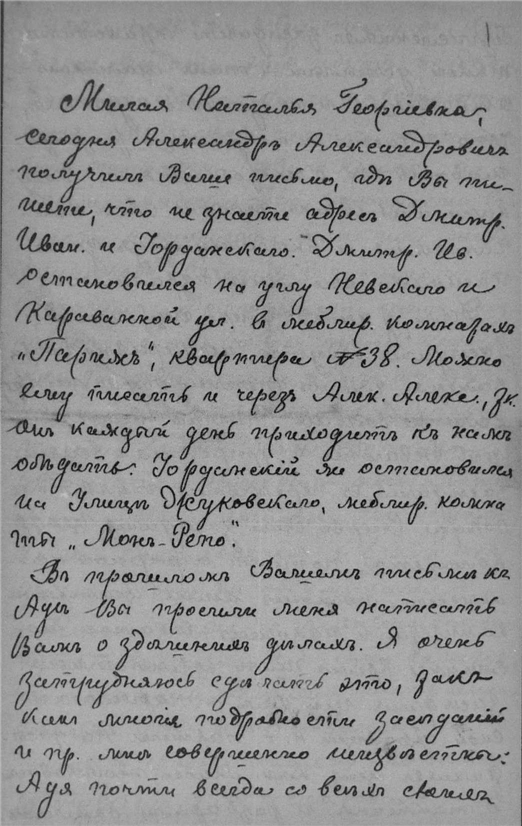 1
Милая Наталья Георгіевна,
сегодня Александръ Александровичъ
получилъ Ваше письмо, гдѣ Вы пи-
шете, что не знаете адресъ Дмитр.
Иван. и Іорданскаго. Дмитр. Ив.
остановился на углу Невскаго и
Караванной ул. в меблир. комнатахъ
„Парижъ“, квартира № 38. Можно
ему писать и черезъ Алек. Алекс.,
онъ каждый день приходитъ къ намъ
обѣдать. Іорданскій же остановился
на Улицѣ Жуковскаго, меблир. комна
ты „Монъ-Репо“.
Въ прошломъ Вашемъ письмѣ къ
Адѣ Вы просили меня написать
Вамъ о здѣшнихъ дѣлахъ. Я очень
затрудняюсь сдѣлать это, такъ
какъ многія подробности засѣданій
и пр. мнѣ совершенно неизвѣстны:
Адя почти всегда со всѣхъ